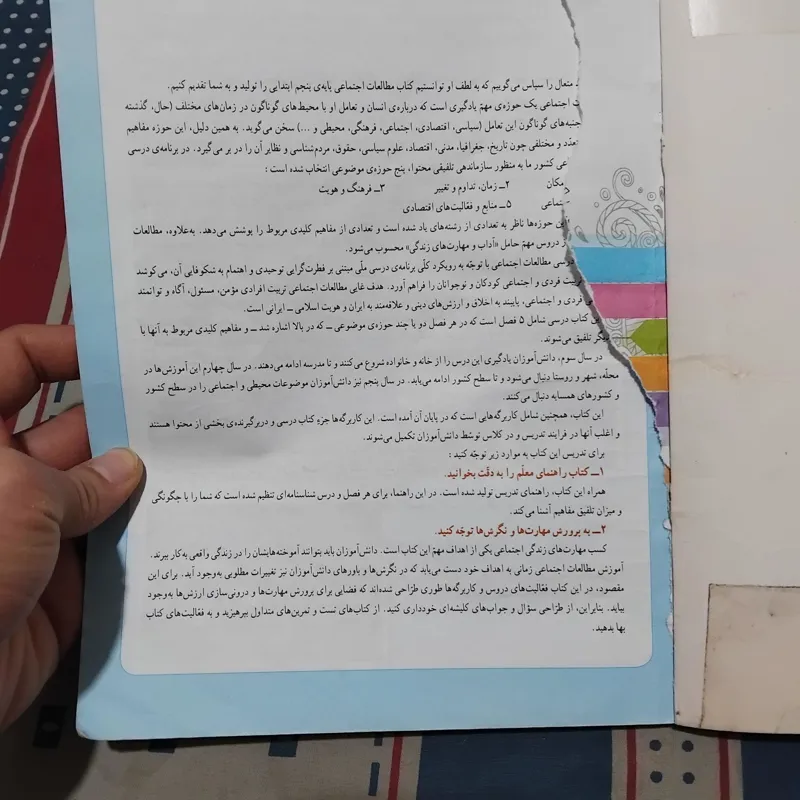 متعال را سپاس می‌گوییم که به لطف او توانستیم کتاب مطالعات اجتماعی پایه‌ی پنجم ابتدایی را تولید و به شما تقدیم کنیم.
اجتماعی یک حوزه‌ی مهمّ یادگیری است که درباره‌ی انسان و تعامل او با محیط‌های گوناگون در زمان‌های مختلف (حال، گذشته
جنبه‌های گوناگون این تعامل (سیاسی، اقتصادی، اجتماعی، فرهنگی، محیطی و ...) سخن می‌گوید. به همین دلیل، این حوزه مفاهیم
و مختلفی چون تاریخ، جغرافیا، مدنی، اقتصاد، علوم سیاسی، حقوق، مردم‌شناسی و نظایر آن را در بر می‌گیرد. در برنامه‌ی درسی
کشور ما به منظور سازماندهی تلفیقی محتوا، پنج حوزه‌ی موضوعی انتخاب شده است :
مکان ۲ــ زمان، تداوم و تغییر ۳ــ فرهنگ و هویت
۵ــ منابع و فعّالیت‌های اقتصادی
این حوزه‌ها ناظر به تعدادی از رشته‌های یاد شده است و تعدادی از مفاهیم کلیدی مربوط را پوشش می‌دهد. به‌علاوه، مطالعات
دروس مهمّ حامل «آداب و مهارت‌های زندگی» محسوب می‌شود.
درسی مطالعات اجتماعی با توجّه به رویکرد کلّی برنامه‌ی درسی ملّی مبتنی بر فطرت‌گرایی توحیدی و اهتمام به شکوفایی آن، می‌کوشد
تربیت فردی و اجتماعی کودکان و نوجوانان را فراهم آورد. هدف غایی مطالعات اجتماعی تربیت افرادی مؤمن، مسئول، آگاه و توانمند
فردی و اجتماعی، پایبند به اخلاق و ارزش‌های دینی و علاقه‌مند به ایران و هویت اسلامی ــ ایرانی است.
این کتاب درسی شامل ۵ فصل است که در هر فصل دو یا چند حوزه‌ی موضوعی ــ که در بالا اشاره شد ــ و مفاهیم کلیدی مربوط به آنها با
یکدیگر تلفیق می‌شوند.
در سال سوم، دانش‌آموزان یادگیری این درس را از خانه و خانواده شروع می‌کنند و تا مدرسه ادامه می‌دهند. در سال چهارم این آموزش‌ها در
محلّه، شهر و روستا دنبال می‌شود و تا سطح کشور ادامه می‌یابد. در سال پنجم نیز دانش‌آموزان موضوعات محیطی و اجتماعی را در سطح کشور
و کشورهای همسایه دنبال می‌کنند.
این کتاب، همچنین شامل کاربرگه‌هایی است که در پایان آن آمده است. این کاربرگه‌ها جزء کتاب درسی و دربرگیرنده‌ی بخشی از محتوا هستند
و اغلب آنها در فرایند تدریس و در کلاس توسّط دانش‌آموزان تکمیل می‌شوند.
برای تدریس این کتاب به موارد زیر توجّه کنید :
۱ــ کتاب راهنمای معلّم را به دقّت بخوانید.
همراه این کتاب، راهنمای تدریس تولید شده است. در این راهنما، برای هر فصل و درس شناسنامه‌ای تنظیم شده است که شما را با چگونگی
و میزان تلفیق مفاهیم آشنا می‌کند.
۲ــ به پرورش مهارت‌ها و نگرش‌ها توجّه کنید.
کسب مهارت‌های زندگی اجتماعی یکی از اهداف مهمّ این کتاب است. دانش‌آموزان باید بتوانند آموخته‌هایشان را در زندگی واقعی به‌کار ببرند.
آموزش مطالعات اجتماعی زمانی به اهداف خود دست می‌یابد که در نگرش‌ها و باورهای دانش‌آموزان نیز تغییرات مطلوبی به‌وجود آید. برای این
مقصود، در این کتاب فعّالیت‌های دروس و کاربرگه‌ها طوری طرّاحی شده‌اند که فضایی برای پرورش مهارت‌ها و درونی‌سازی ارزش‌ها به‌وجود
بیاید. بنابراین، از طرّاحی سؤال و جواب‌های کلیشه‌ای خودداری کنید. از کتاب‌های تست و تمرین‌های متداول بپرهیزید و به فعّالیت‌های کتاب
بها بدهید.